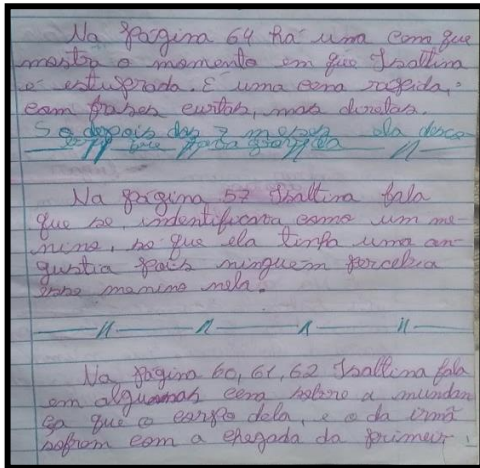 Na página 64 há uma cena que
mostra o momento em que Isaltina
é estuprada. É uma cena rápida,
com frases curtas, mas diretas.
Só depois dos 7 meses ela desco
estava grávida
Na página 57 Isaltina fala
que se indentificara como um me-
nino, so que ela tinha uma an-
gustia pois ninguem percebia
esse menino nela.
Na página 60, 61, 62 Isaltina fala
em algumas cena sobre a mundan
ça que o corpo dela, e o da irmã
sofrem com a chegada da primeir